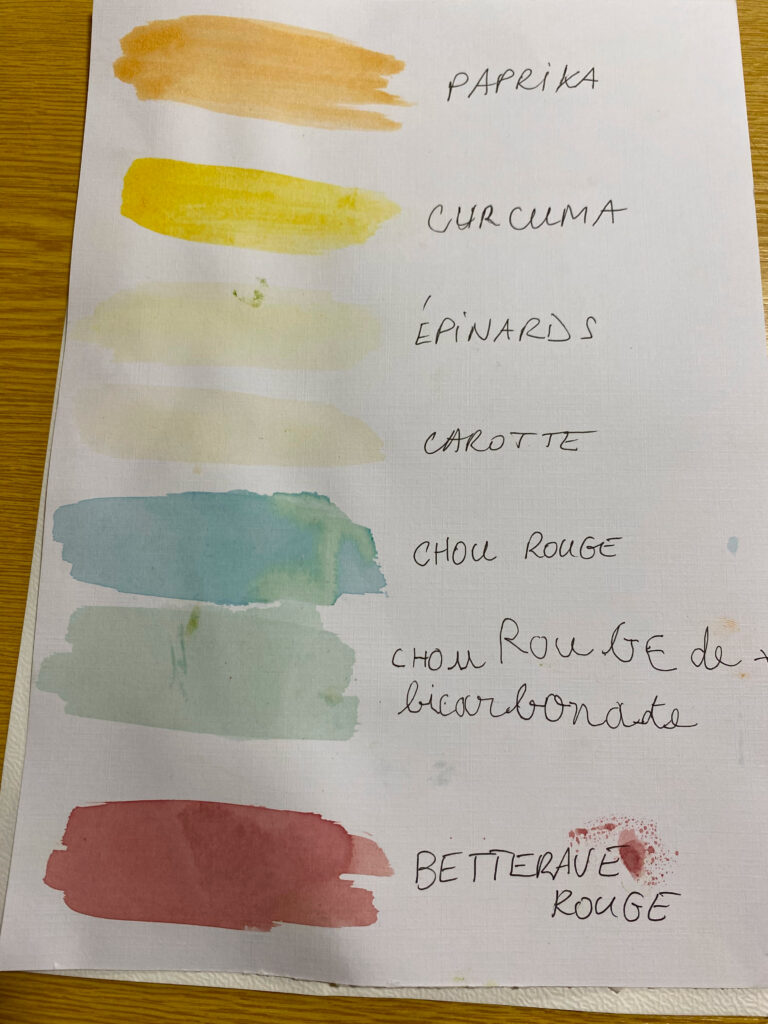 PAPRIKA
CURCUMA
ÉPINARDS
CAROTTE
CHOU ROUGE
CHOU ROUGE de +
bicarbonate
BETTERAVE
ROUGE